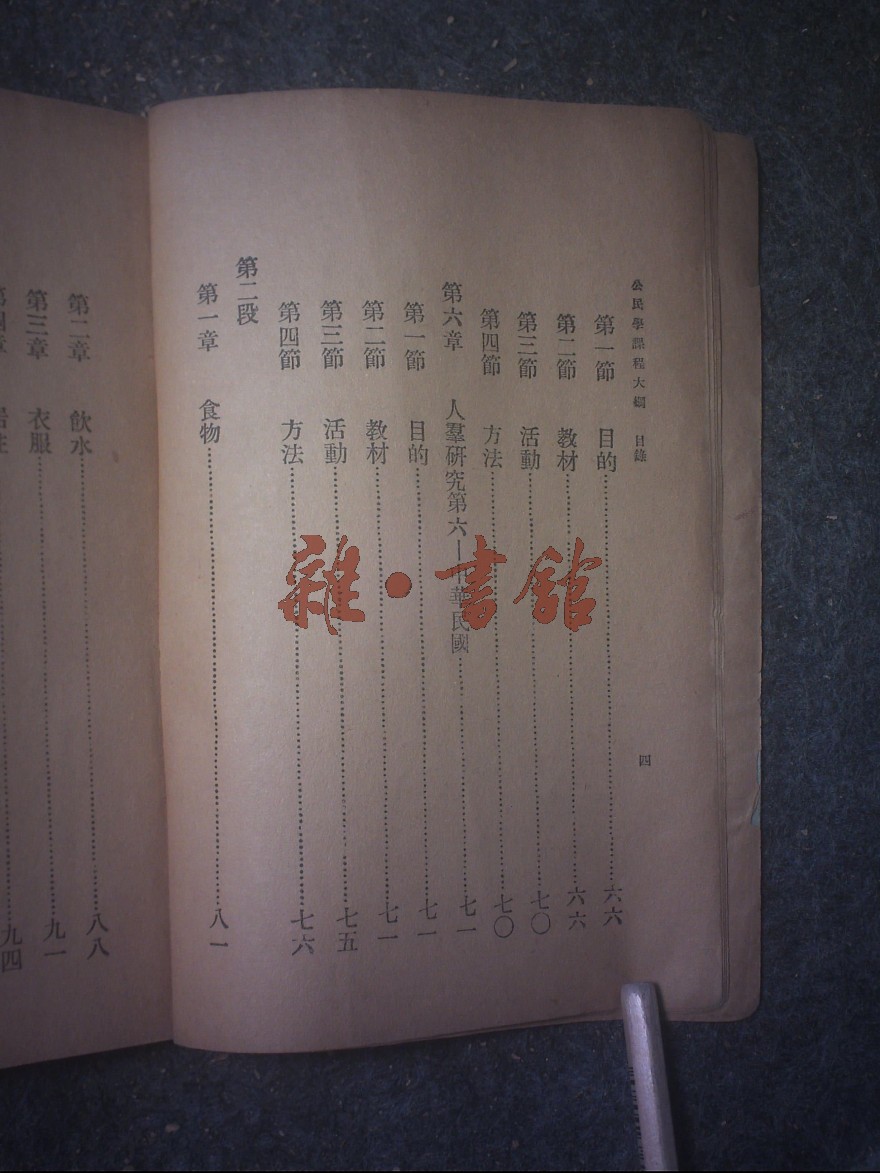 公民學課程大綱 目錄
四
第一節 目的 六六
第二節 教材 六六
第三節 活動 七〇
第四節 方法 七〇
第六章 人羣研究第六—中華民國 七一
第一節 目的 七一
第二節 教材 七一
第三節 活動 七五
第四節 方法 七六
第二段
第一章 食物 八一
第二章 飲水 八八
第三章 衣服 九一
九四
雜·書館